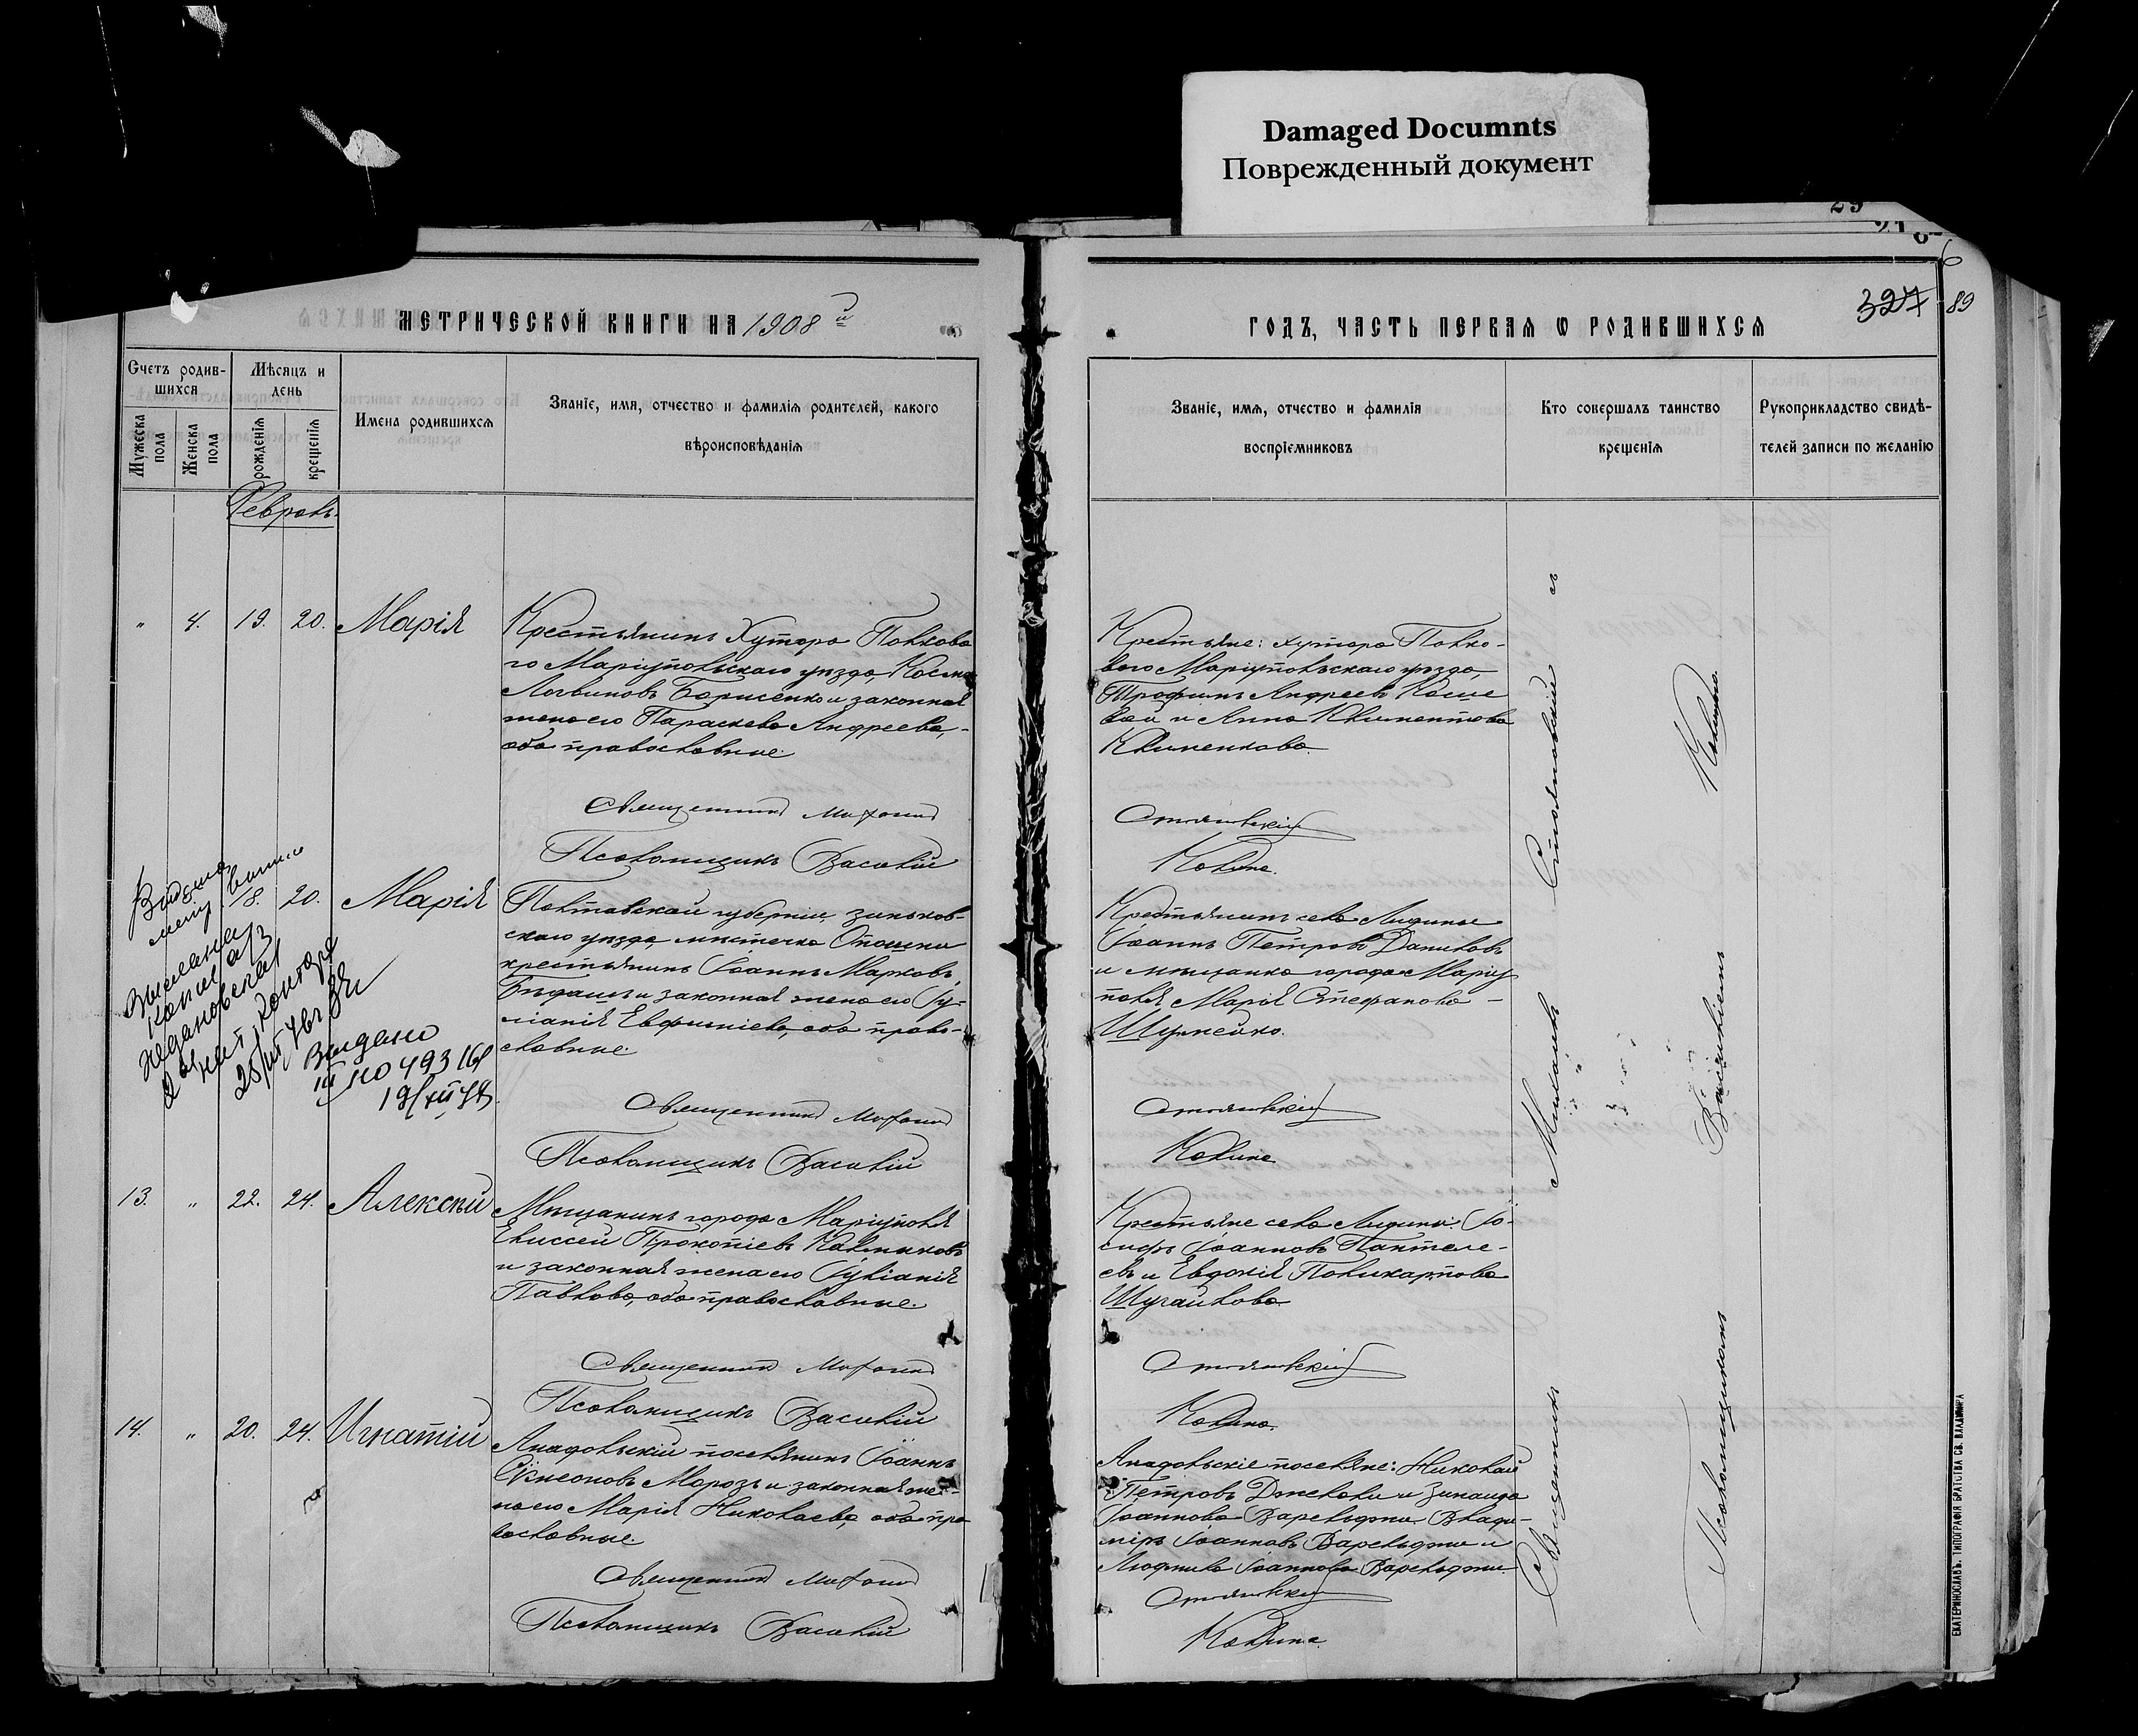 Damaged Documnts
Поврежденный документ
29
327
89
МЕТРИЧЕСКОЙ КНИГИ НА 1908 й
ГОДЪ, ЧАСТЬ ПЕРВАЯ Ѡ РОДИВШИХСЯ
Счетъ родив-
шихся
Мужеска
пола
Женска
пола
Мѣсяцъ и
день
рожденія
крещенія
Имена родившихся
Званіе, имя, отчество и фамилія родителей, какого
вѣроисповѣданія
Званіе, имя, отчество и фамилія
воспріемниковъ
Кто совершалъ таинство
крещенія
Рукоприкладство свидѣ-
телей записи по желанію
Февраль
" 4. 19. 20. Марія
Крестьянинъ Хутора Полкова
го Маріупольскаго уѣзда, Косма
Логвиновъ Борисенко и законная
жена его Параскева Андреева,
оба православные.
Священникъ
Псаломщикъ Василій
Крестьяне: хутора Полко-
вого Маріупольскаго уѣзда,
Трофимъ Андреевъ Коше
вой и Анна Климентова
Клименкова.
Стояновскій
Калина.
18. 20. Марія
Полтавской губерніи зиньков-
скаго уѣзда, мѣстечка Опошни
крестьянинъ Іоаннъ Марковъ
и законная жена его Іу-
ліанія Евфиміева, оба право-
славные.
Священникъ
Псаломщикъ Василій
Крестьянинъ села Лидины
Іоаннъ Петровъ Даниловъ
и мѣщанка города Маріу
поля Марія Стефанова
Стояновскій
Калина.
Выслана
копия
Выдано
III НО 493161
13. " 22. 24. Алексѣй
Мѣщанинъ города Маріуполя
Елиссей Прокопіевъ Калмыковъ
и законная жена его Іуліанія
Павлова, оба православные.
Священникъ
Псаломщикъ Василій
Крестьяне села Лидины: Іо-
сифъ Іоанновъ Пантеле-
евъ и Евдокія Поликарпова
Шугайлова.
Стояновскій
Калина.
14. " 20. 24. Игнатій
Анадольскій поселянинъ Іоаннъ
Сѵмеоновъ Морозъ и законная же-
на его Марія Николаева, оба пра
вославные.
Священникъ
Псаломщикъ Василій
Анадольскіе поселяне: Николай
Петровъ Джелали и Зинаида
Іоаннова Варельджи. Влади-
міръ Іоанновъ Варельджи и
Людмила Іоаннова Варельджи.
Стояновскій
Калина.
Священникъ Стояновскій съ
Псаломщикомъ Василіемъ Калина.
ЕКАТЕРИНОСЛАВЪ. ТИПОГРАФІЯ БРАТСТВА СВ. ВЛАДИМІРА